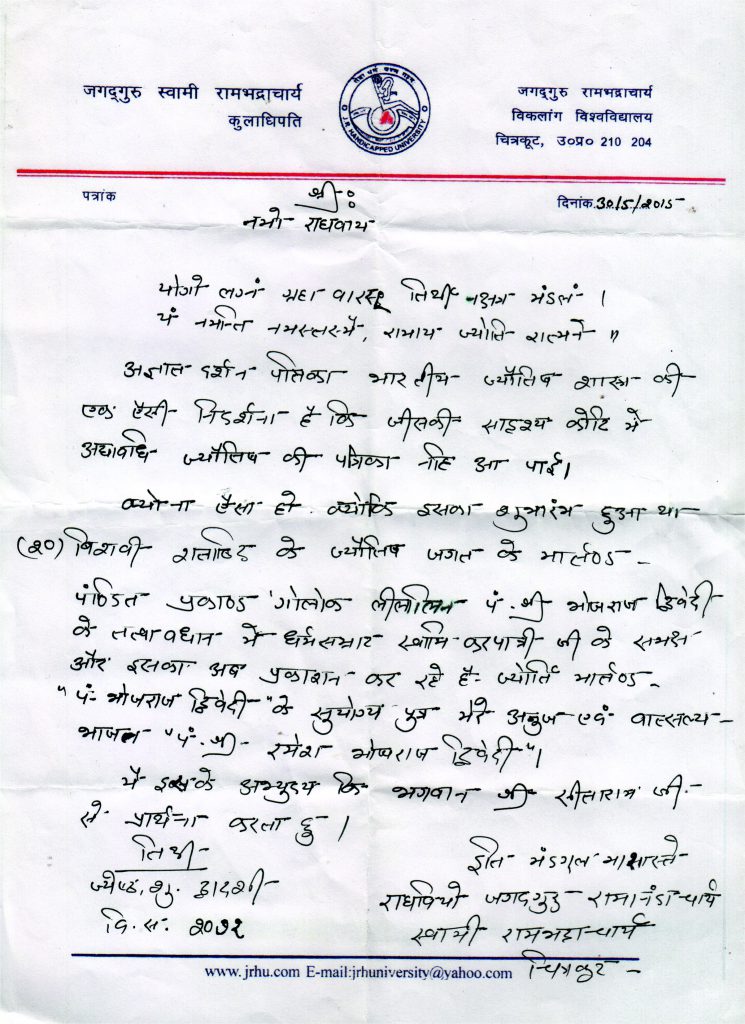 जगद्गुरु स्वामी रामभद्राचार्य
कुलाधिपति
सेवा धर्मः परम गहनः
J.R. HANDICAPPED UNIVERSITY
जगद्गुरु रामभद्राचार्य
विकलांग विश्वविद्यालय
चित्रकूट, उ०प्र० 210 204
पत्रांक
दिनांक 30/5/2015
श्रीः
नमो राघवाय
योगो लग्नं ग्रहा वारस्तु तिथीं नक्षत्र मंडलं ।
यं नमन्ति नमस्तस्मै, रामाय ज्योति रात्मने ॥
अज्ञात दर्शन पत्रिका भारतीय ज्यौतिष शास्त्र की
एक ऐसी निदर्शना है कि जीसकी सादृश्य कोटि मे
अद्यावधि ज्यौतिष की पत्रिका नहि आ पाई।
क्योना ऐसा हो. क्योकि इसका शुभारंभ हुआ था
(२०) विशवी शताब्दि के ज्यौतिष जगत के मार्तण्ड -
पंण्डित प्रकाण्ड गोलोक लीलालिन पं. श्री भोजराज द्विवेदी
के तत्वावधान मे धर्मसम्राट स्वामि करपात्री जी के समक्ष
और इसका अब प्रकाशन कर रहे है- ज्योर्ति मार्तण्ड -
"पं- भोजराज द्विवेदी" के सुयोग्य पुत्र मेरे अनुज एवं वात्सल्य-
भाजन "पं. श्री- रमेश भोजराज द्विवेदी"।
मै इसके अभ्युदय कि भगवान श्री सीताराम जी-
से प्रार्थना करता हु ।
तिथी-
ज्येष्ठ, शु. द्वादशी-
वि. स. २०७२
इति मंडगल माशास्ते
राघवियो जगदगुरु रामानंदाचार्य
स्वामी रामभद्राचार्य
चित्रकूट -
www.jrhu.com E-mail:jrhuniversity@yahoo.com